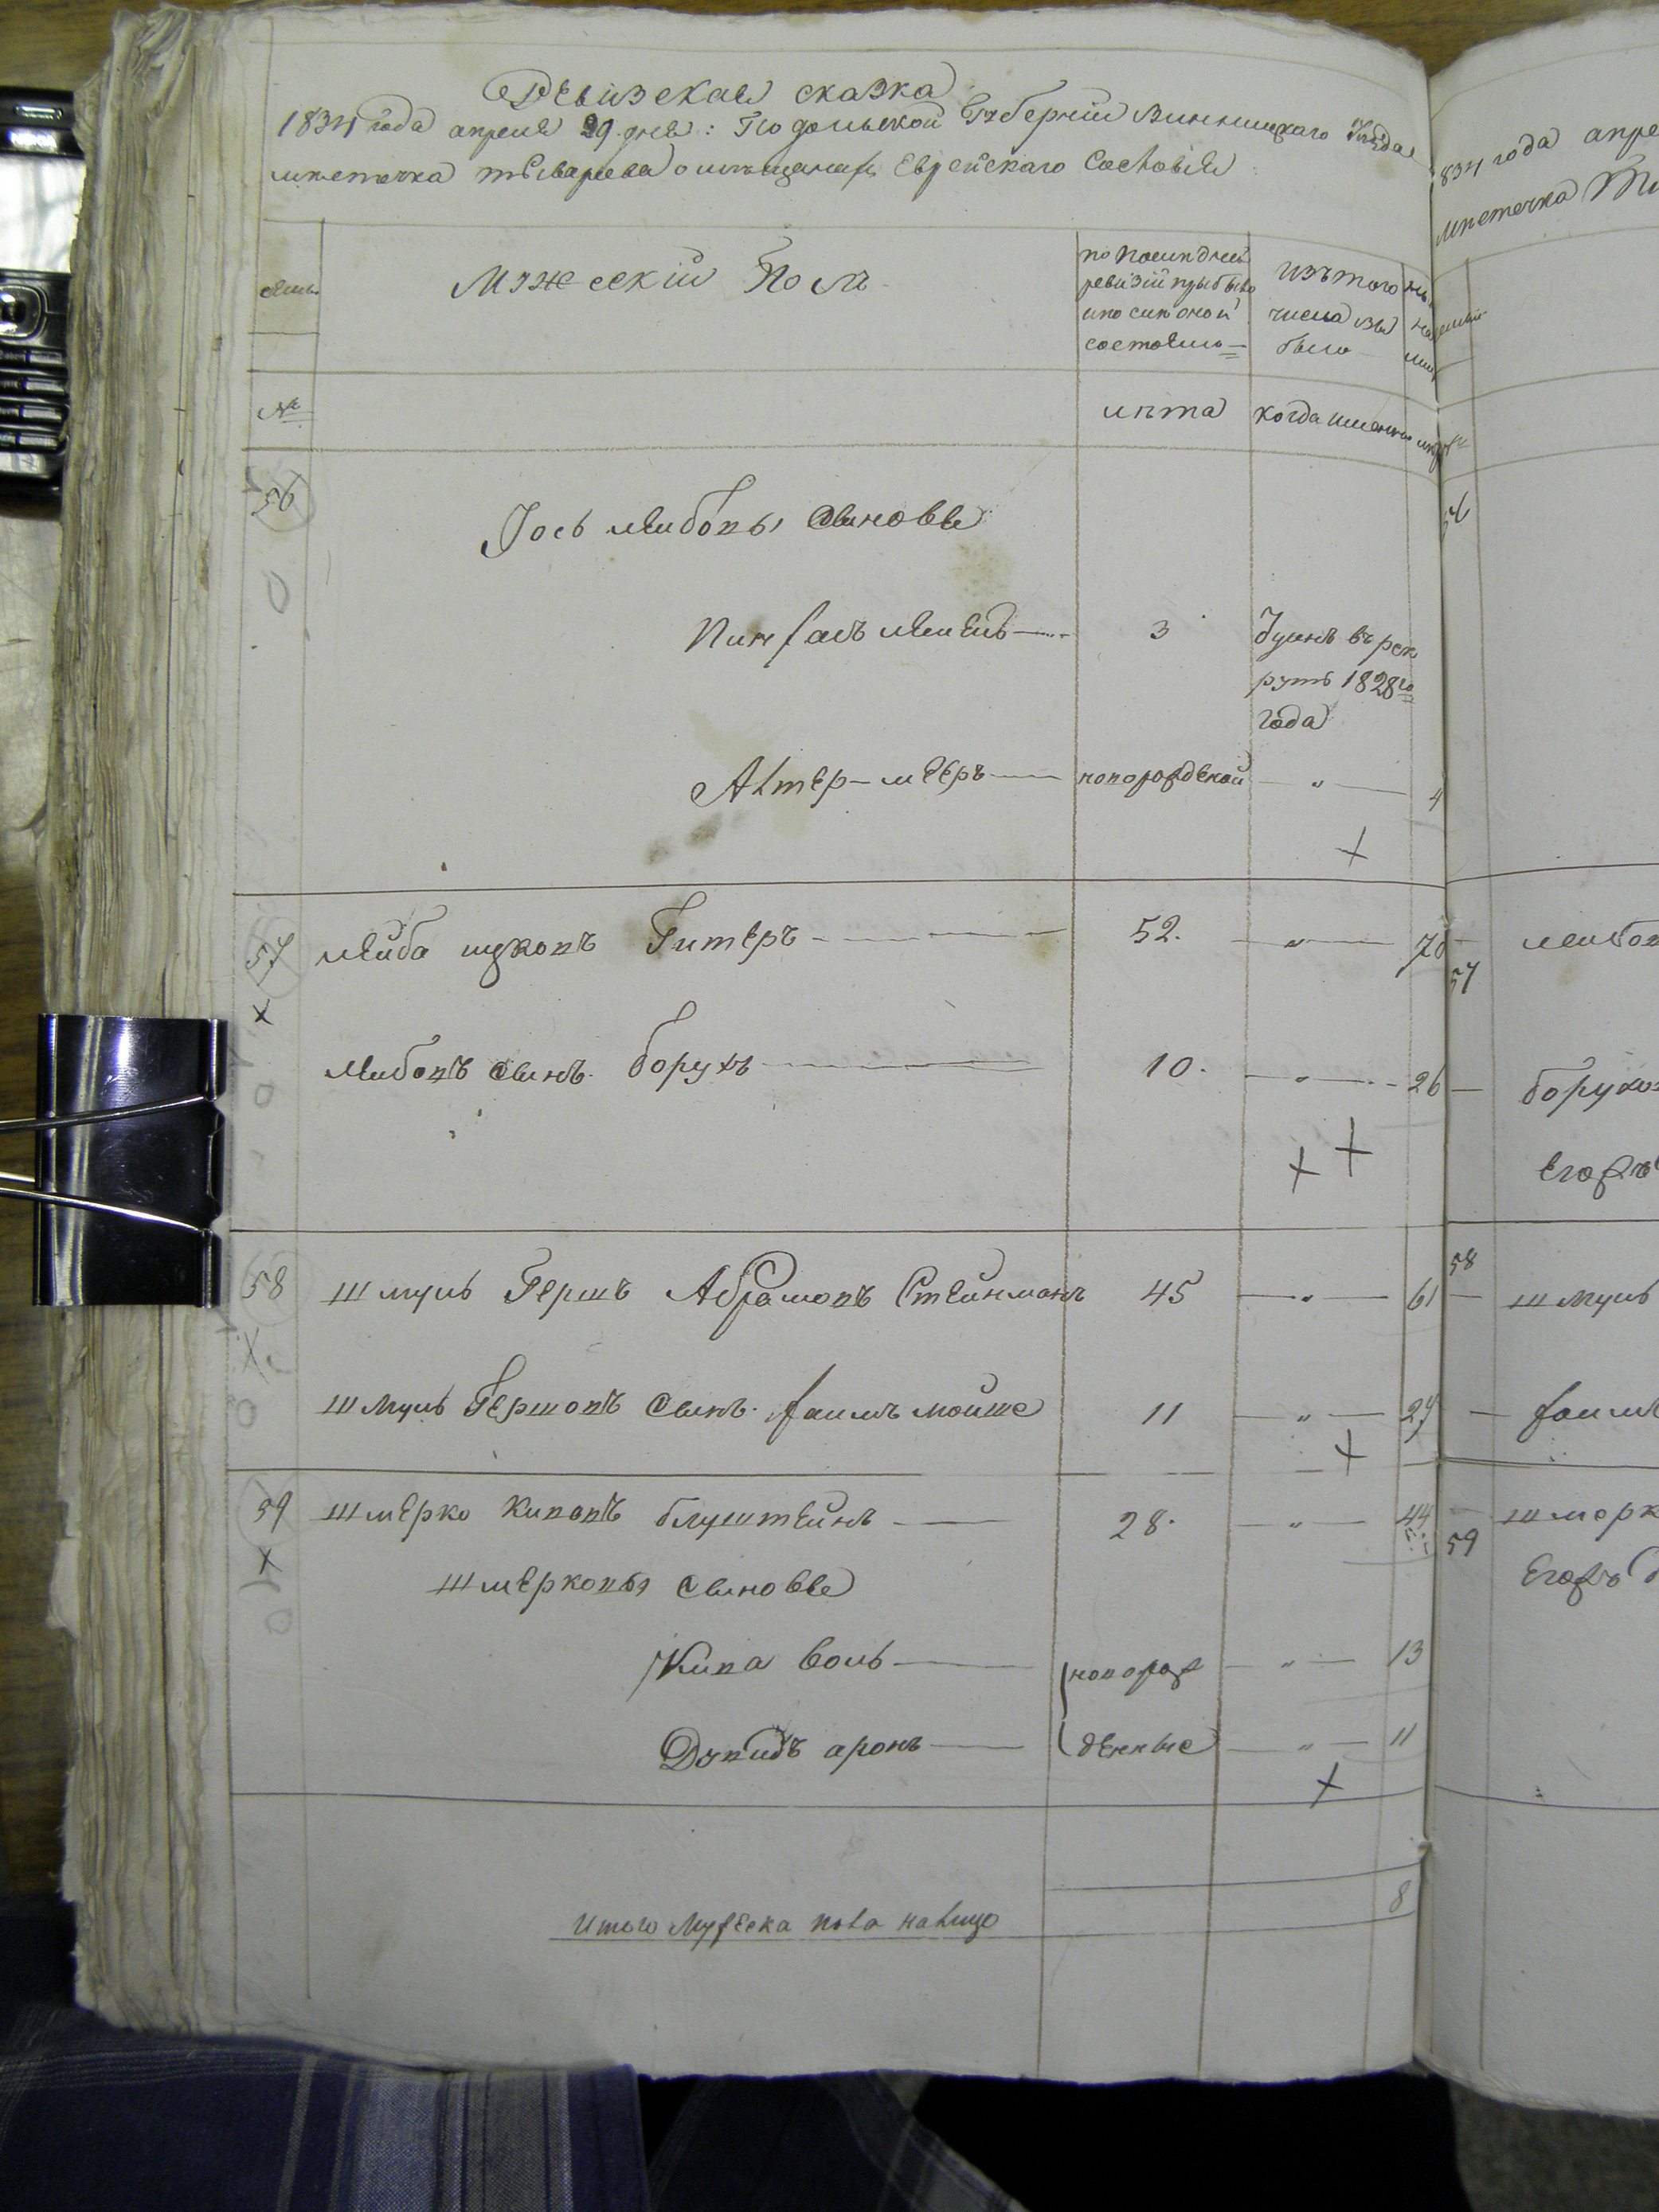 Ревизская сказка
1834 года апреля 29 дня: Подольской Губерніи Винницкаго Уезда
местечка тыварова о мещанахъ Еврейскаго Состоянія
Мужескій Полъ
по последней
ревизіи прибыло
и по сих оной
состояло
Изъ того
числа вы
было
№
лета
когда именно
56
Іось лейбовы сыновья
Пинхасъ лейзеръ
3
Зданъ въ рек
рутъ 1828го
года
Алтер-мееръ
новорожденой
"
4
57
лейба ицковъ Гитеръ
52.
"
70
лейбовъ сынъ борухъ
10.
"
26
58
шмуль Гершъ Абрамовъ Стейнманъ
45
"
61
шмуль Гершовъ сынъ хаимъ мойше
11
"
27
59
шмерко кивовъ блуштейнъ
28.
"
44
шмерковы сыновья
Кива воль
новорож
"
13
Дувидъ аронъ
денные
"
11
Итого Мужеска пола налицо
8
834 года апре
местечка
56
57
лейбов
борухо
Егожъ
58
шмуль
хаимъ
59
шмерк
Егожъ